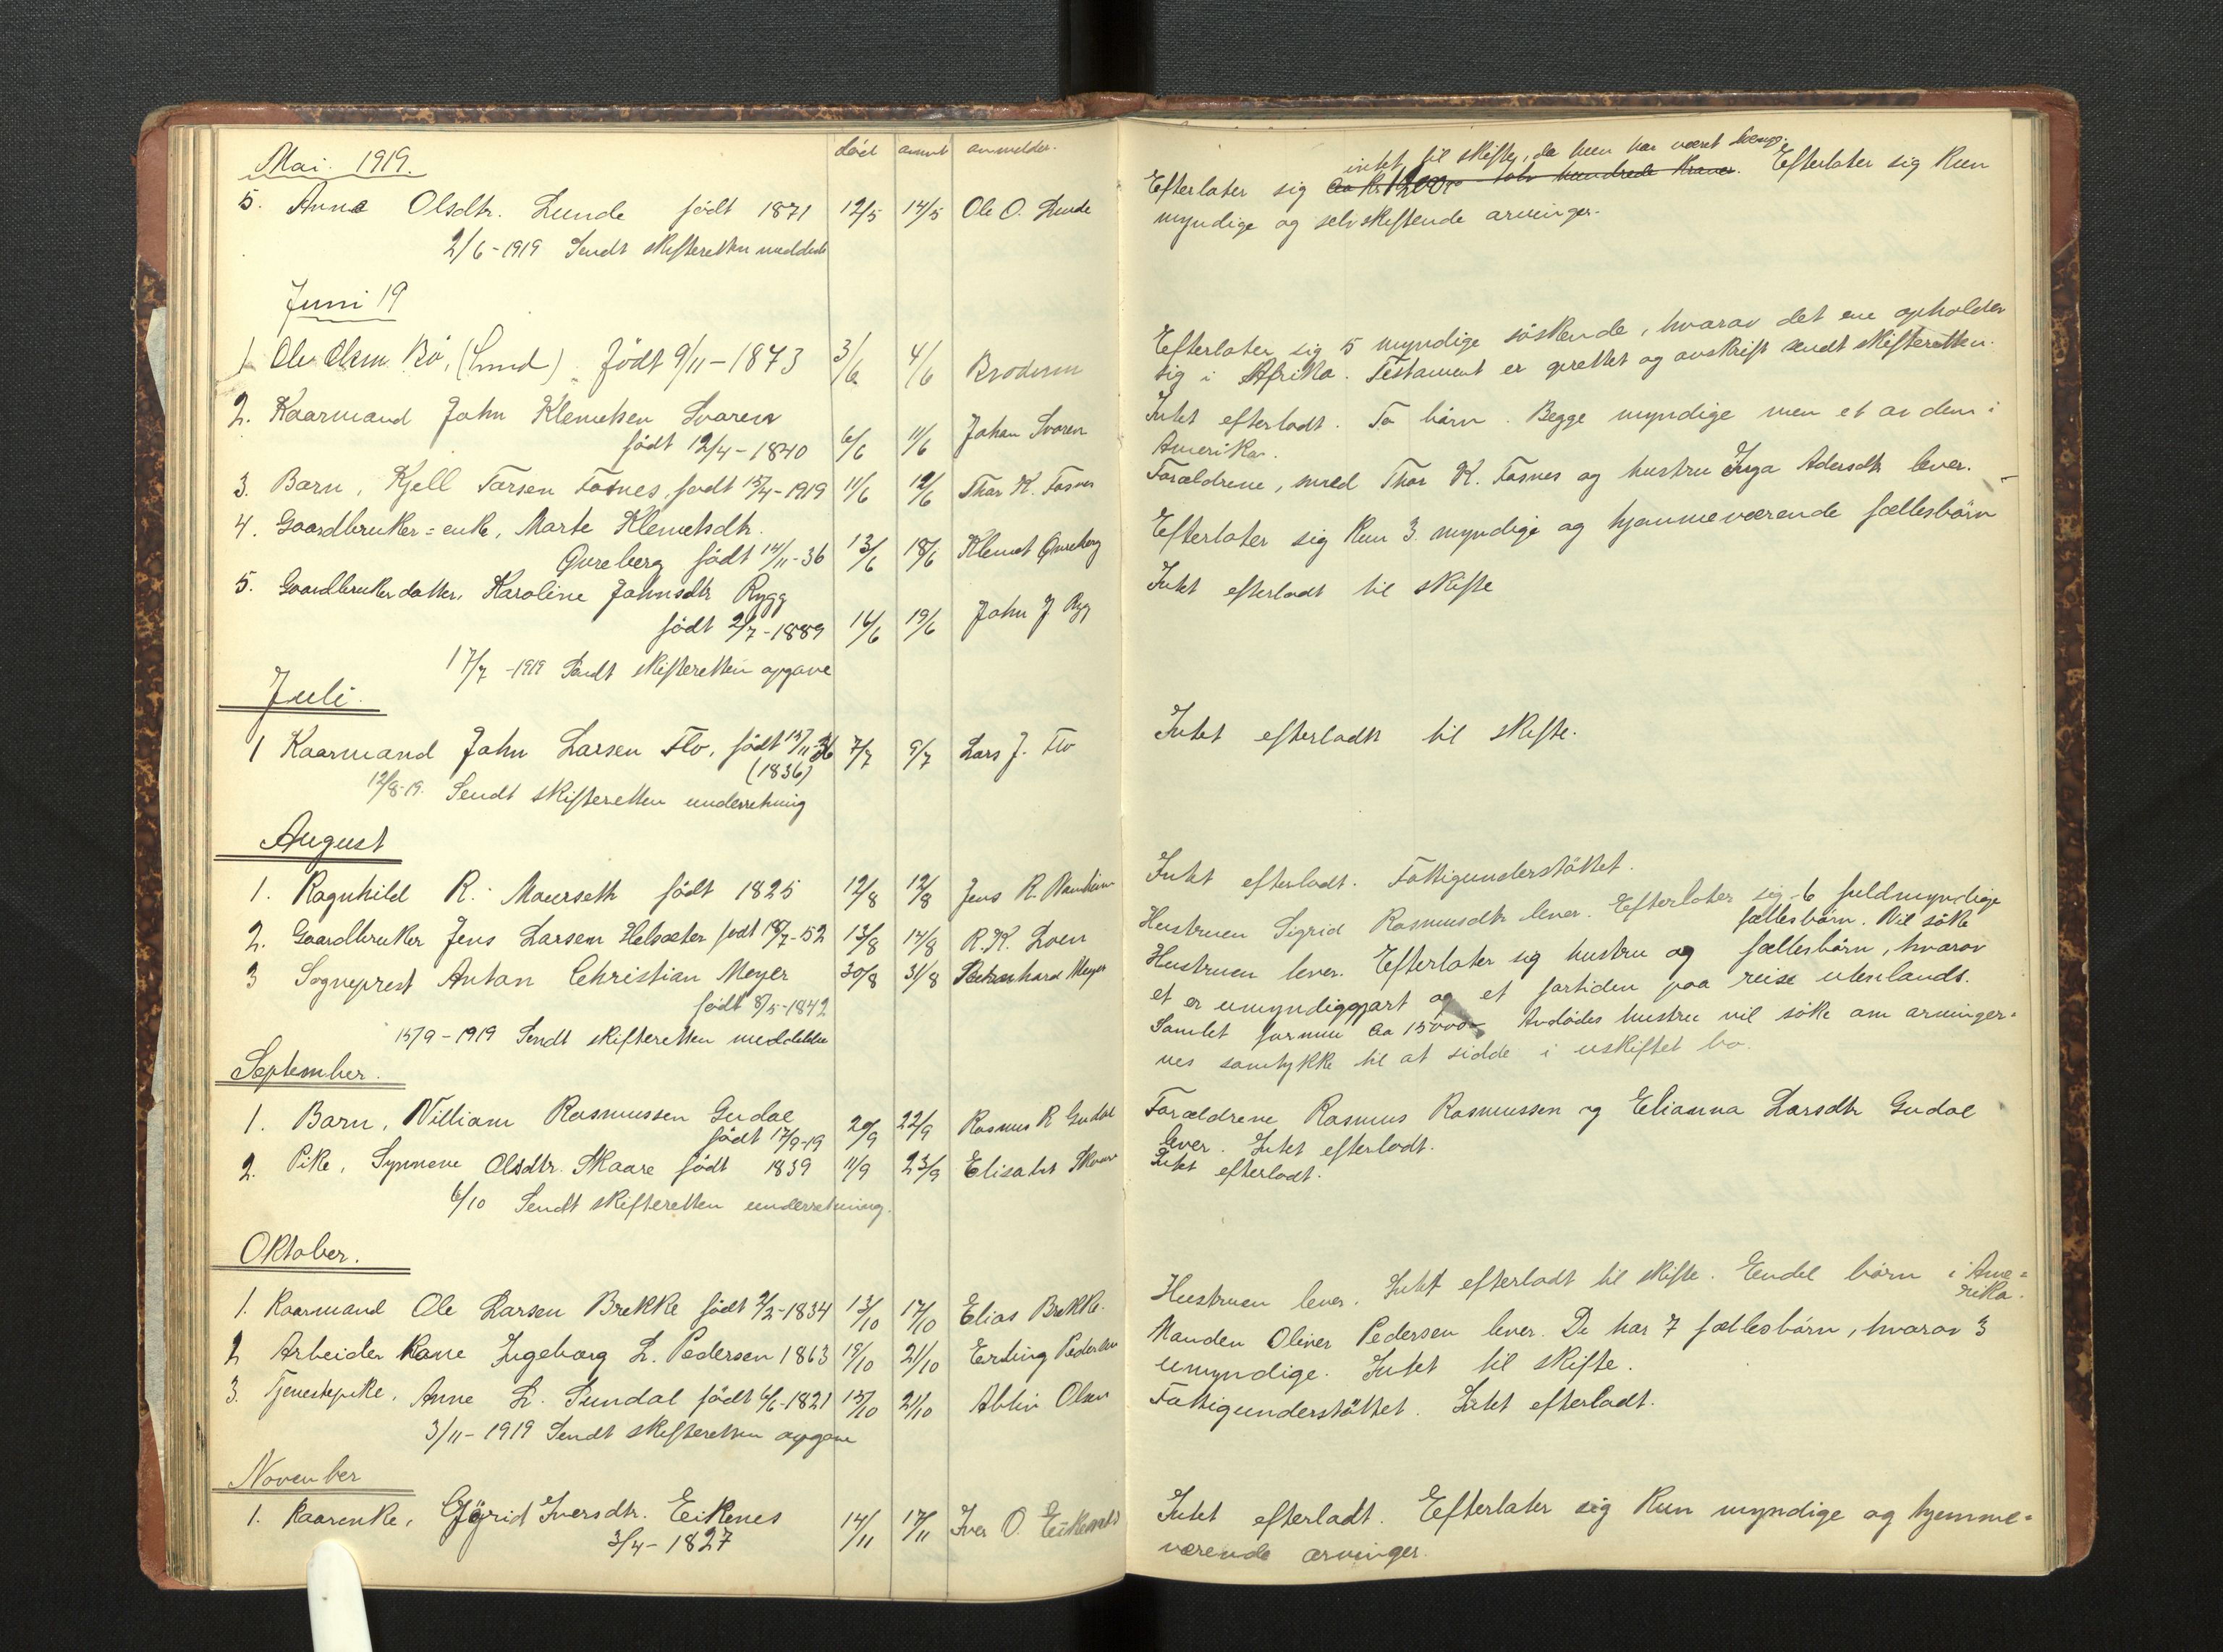 død anm. anmelder.
Mai 1919.
5. Anna Olsdtr. Lunde født 1871 12/5 14/5 Ole O. Lunde
2/6-1919 Sendt skifteretten meddelelse
Juni 19
1 Ole Olsen Bö, (Lund) Födt 9/11-1873 3/6 4/6 Broderen
2. Kaarmand John Klemetsen Svoren
født 12/4-1840 6/6 11/6 Johan Svoren
3. Barn, Kjell Torsen Fosnes, født 15/4-1919 11/6 12/6 Thor K. Fosnes
4. Gaardbruker=enke, Marte Klemetsdtr.
Qvreberg født 14/11-36 13/6 18/6 Klemet Qvreberg
5. Gaardbrukerdatter, Karoline Johnsdtr Rygg
født 2/7-1889 16/6 19/6 John J Rygg
17/7-1919 Sendt skifteretten opgave
Juli.
1 Kaarmand John Larsen Flo, født 15/11-36 7/7 9/7 Lars J. Flo
(1836)
12/8-19. Sendt skifteretten underretning
August
1. Ragnhild R. Maurseth født 1825 12/8 12/8 Jens R.
2. Gaardbruker Jens Larsen Helsæter født 18/7-52 13/8 14/8 R.K. Loen
3 Sogneprest Anton Christian Meyer 30/8 31/8 Meyer
født 8/5-1842
15/9-1919 Sendt skifteretten meddelelse
September.
1. Barn, William Rasmussen Gudal 20/9 22/9 Rasmus R Gudal
født 17/9-19
2. Pike, Synneve Olsdtr. Skaare født 1839 11/9 23/9 Elisabet Skaare
6/10 Sendt skifteretten underretning.
Oktober.
1. Kaarmand Ole Larsen Brekke født 2/2-1834 13/10 17/10 Elias Brekke.
2 Arbeider Kone Ingeborg L. Pedersen 1863 19/10 21/10 Erling Pedersen
3. Tjenestepike, Anne L. Sundal født 6/6-1821 15/10 21/10 Ablin Olsen
3/11-1919 Sendt skifteretten opgave
November
1. Kaarenke, Gjörid Iversdtr. Eikenes 14/11 17/11 Iver O. Eikenes
3/4-1827
intet til skifte, da hun har været
Efterlater sig ca kr 1200,- tolv hundrede kroner. Efterlater sig kun
myndige og selvskiftende arvinger.
Efterlater sig 5 myndige söskende, hvorav det ene opholder
sig i Afrika. Testament er oprettet og avskrift sendt skifteretten.
Intet efterladt. To börn. Begge myndige men et av dem i
Amerika.
Forældrene, Thor K. Fosnes og hustru Inga Adersdtr lever.
Efterlater sig kun 3 myndige og hjemmeværende fællesbörn
Intet efterladt til skifte
Intet efterladt til skifte.
Intet efterladt. Fattigunderstöttet.
Hustruen Sigrid Rasmusdtr lever. Efterlater sig 6 fuldmyndige
fællesbörn. Vil söke
Hustruen lever. Efterlater sig hustru og fællesbörn, hvorav
et er umyndiggjort og et fortiden paa reise utenlands.
Samlet formue ca 15000,- Avdödes hustru vil söke om arvinger=
nes samtykke til at sidde i uskiftet bo.
Forældrene Rasmus Rasmussen og Elianna Larsdtr Gudal
lever. Intet efterladt.
Intet efterladt.
Hustruen lever. Intet efterladt til skifte. Endel börn i Ame=
rika.
Manden Oliver Pedersen lever. De har 7 fællesbörn, hvorav 3
umyndige. Intet til skifte.
Fattigunderstöttet. Intet efterladt.
Intet efterladt. Efterlater sig kun myndige og hjemme=
værende arvinger.